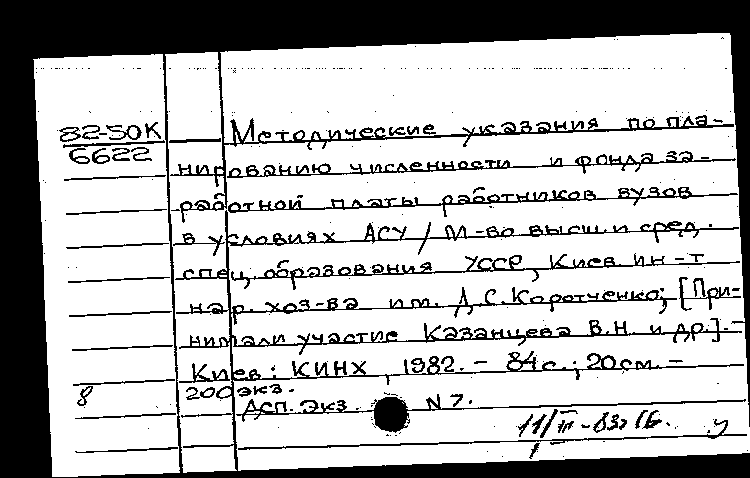 82-50К Методические указания по пла-
6622 нированию численности и фонда за-
работной платы работников вузов
в условиях АСУ / М-во высш. и сред.
спец. образования УССР, Киев. ин-т
нар. хоз-ва им. Д.С. Коротченко; [При-
нимали участие Казанцева В.Н. и др.].-
Киев: КИНХ, 1982. - 84с.; 20см. -
8 200 экз.
Асп. Экз. N 7.
11/III-83г.